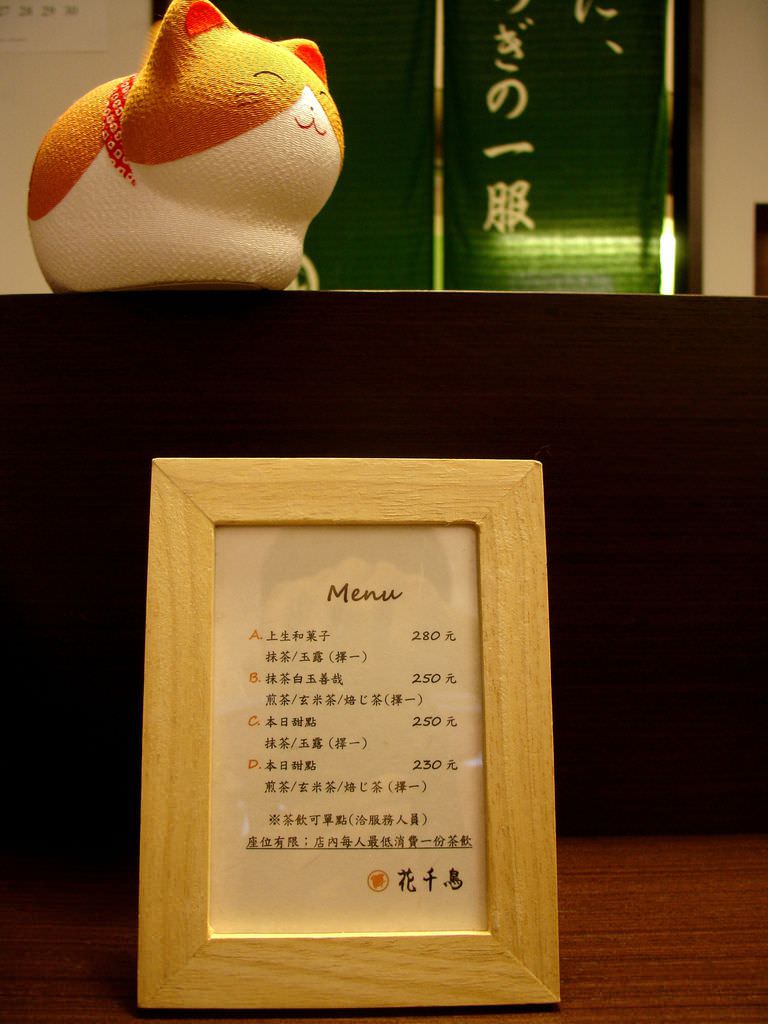 27 28 29 30
に、
つぎの一服
Menu
A. 上生和菓子 280元
抹茶/玉露(擇一)
B. 抹茶白玉善哉 250元
煎茶/玄米茶/焙じ茶(擇一)
C. 本日甜點 250元
抹茶/玉露(擇一)
D. 本日甜點 230元
煎茶/玄米茶/焙じ茶(擇一)
※茶飲可單點(洽服務人員)
座位有限；店內每人最低消費一份茶飲
花千鳥